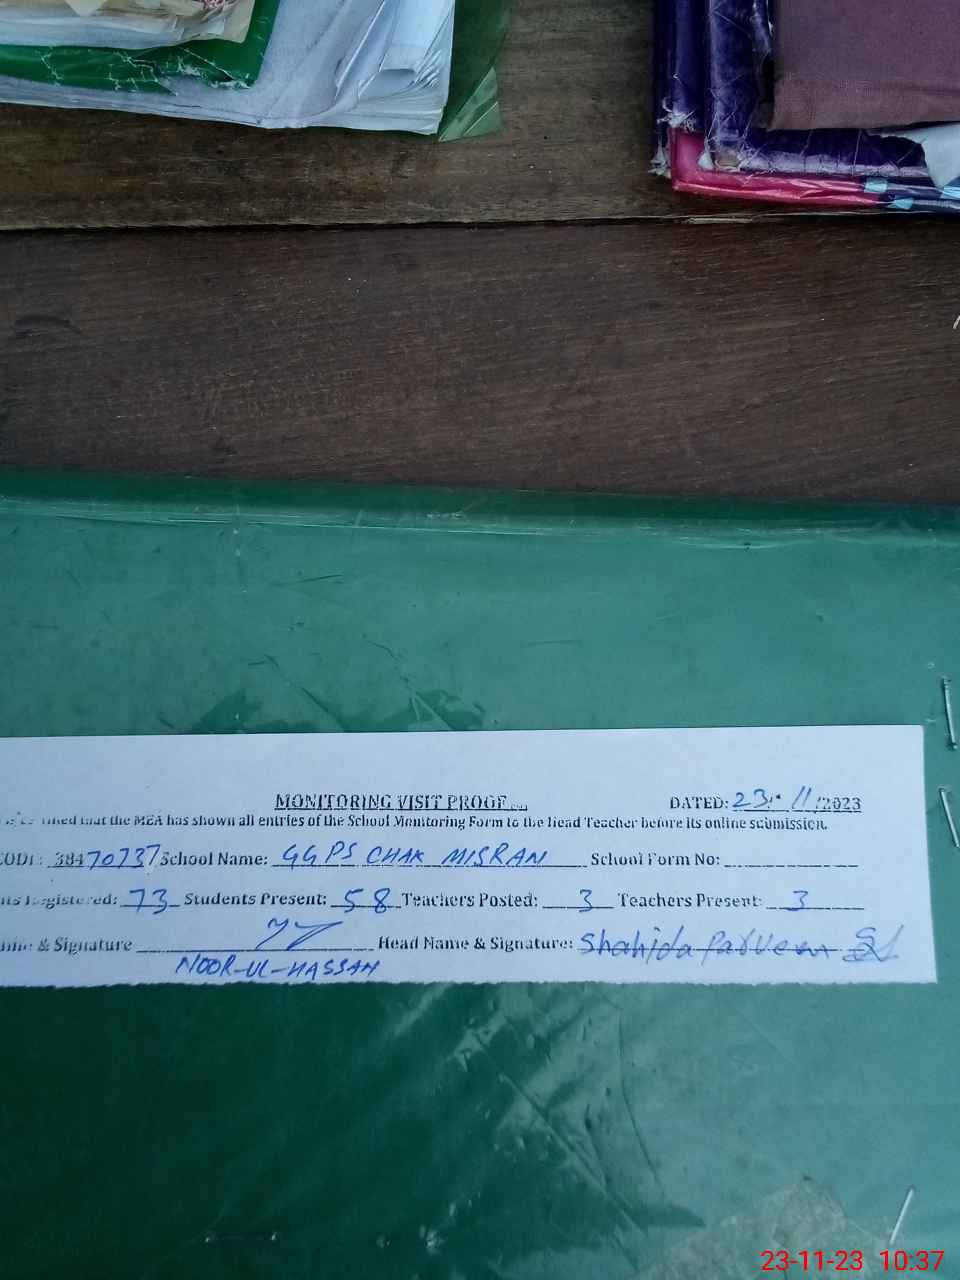 MONITORING VISIT PROOF DATED: 23/11/2023
that the MEA has shown all entries of the School Monitoring Form to the Head Teacher before its online submission.
CODE: 38470737 School Name: GGPS CHAK MISRAN School Form No:
Registered: 73 Students Present: 58 Teachers Posted: 3 Teachers Present: 3
& Signature Head Name & Signature: Shahida Parveen
NOOR-UL-HASSAN
23-11-23 10:37